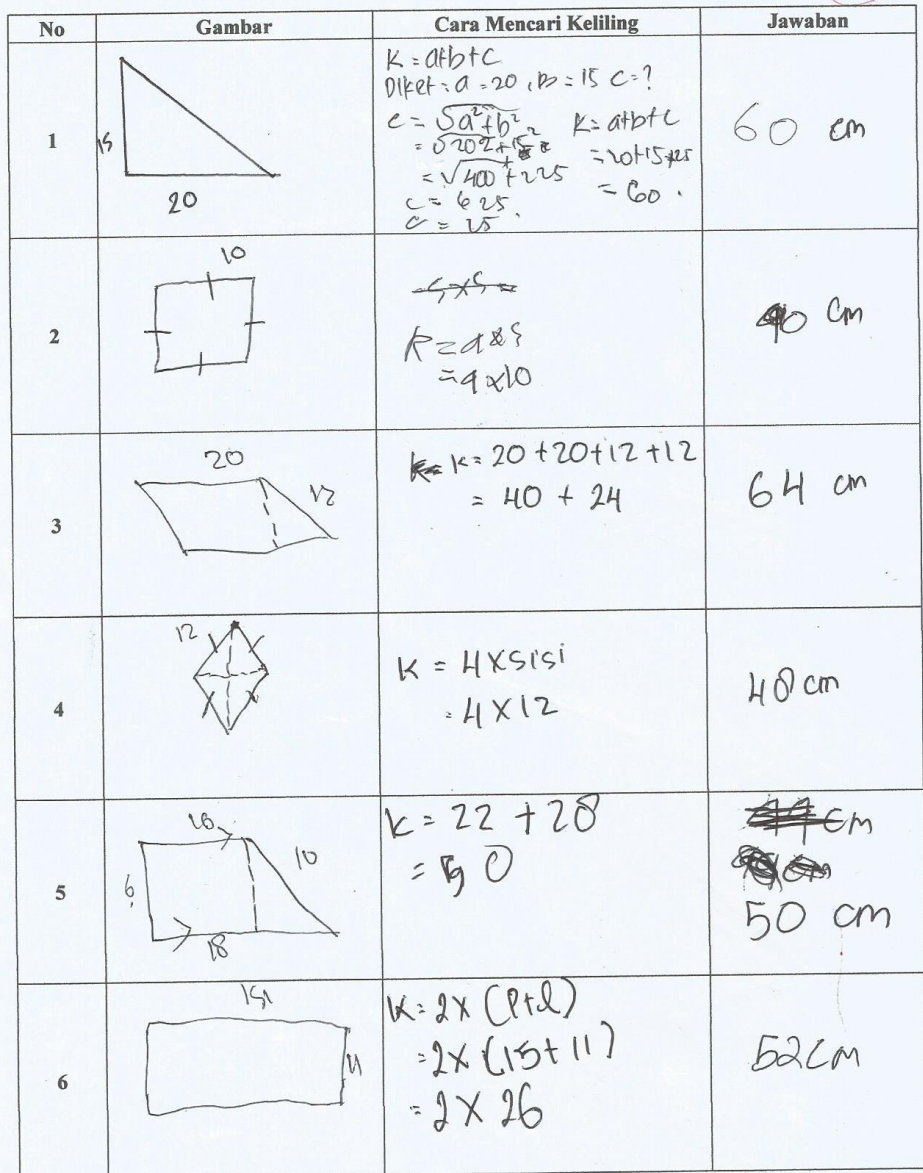 No Gambar Cara Mencari Keliling Jawaban
1
15
20
K = a+b+c
Diket : a = 20 , b = 15 c = ?
c = √a²+b²
= √20²+15²
= √400+225
c = 625
c = 25
K = a+b+c
= 20+15+25
= 60
60 cm
2
10
K =
= 4x10
40 cm
3
20
12
K = 20+20+12+12
= 40 + 24
64 cm
4
12
K = 4xsisi
= 4x12
48 cm
5
10
6
18
K = 22 + 28
= 50
cm
50 cm
6
15
11
K = 2x (P+l)
= 2x (15+11)
= 2 x 26
52 cm